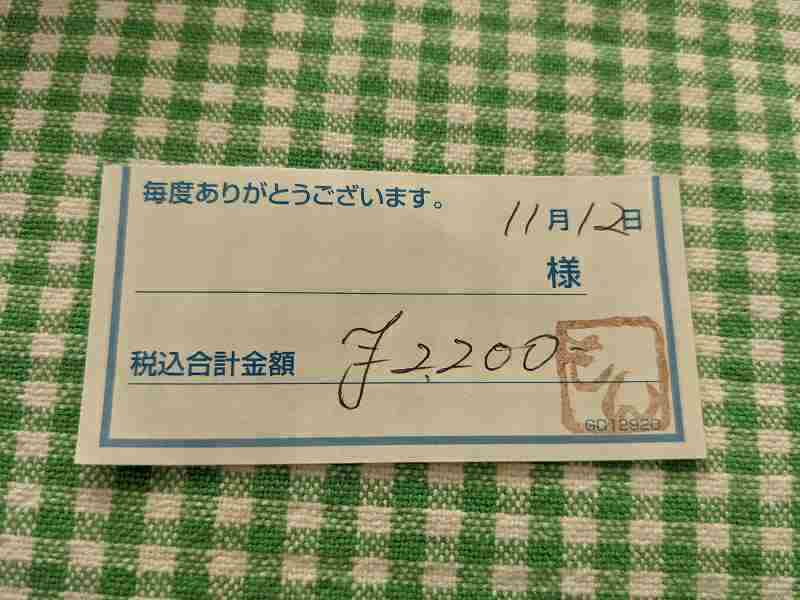 毎度ありがとうございます。
11月12日
様
税込合計金額 ¥2,200-